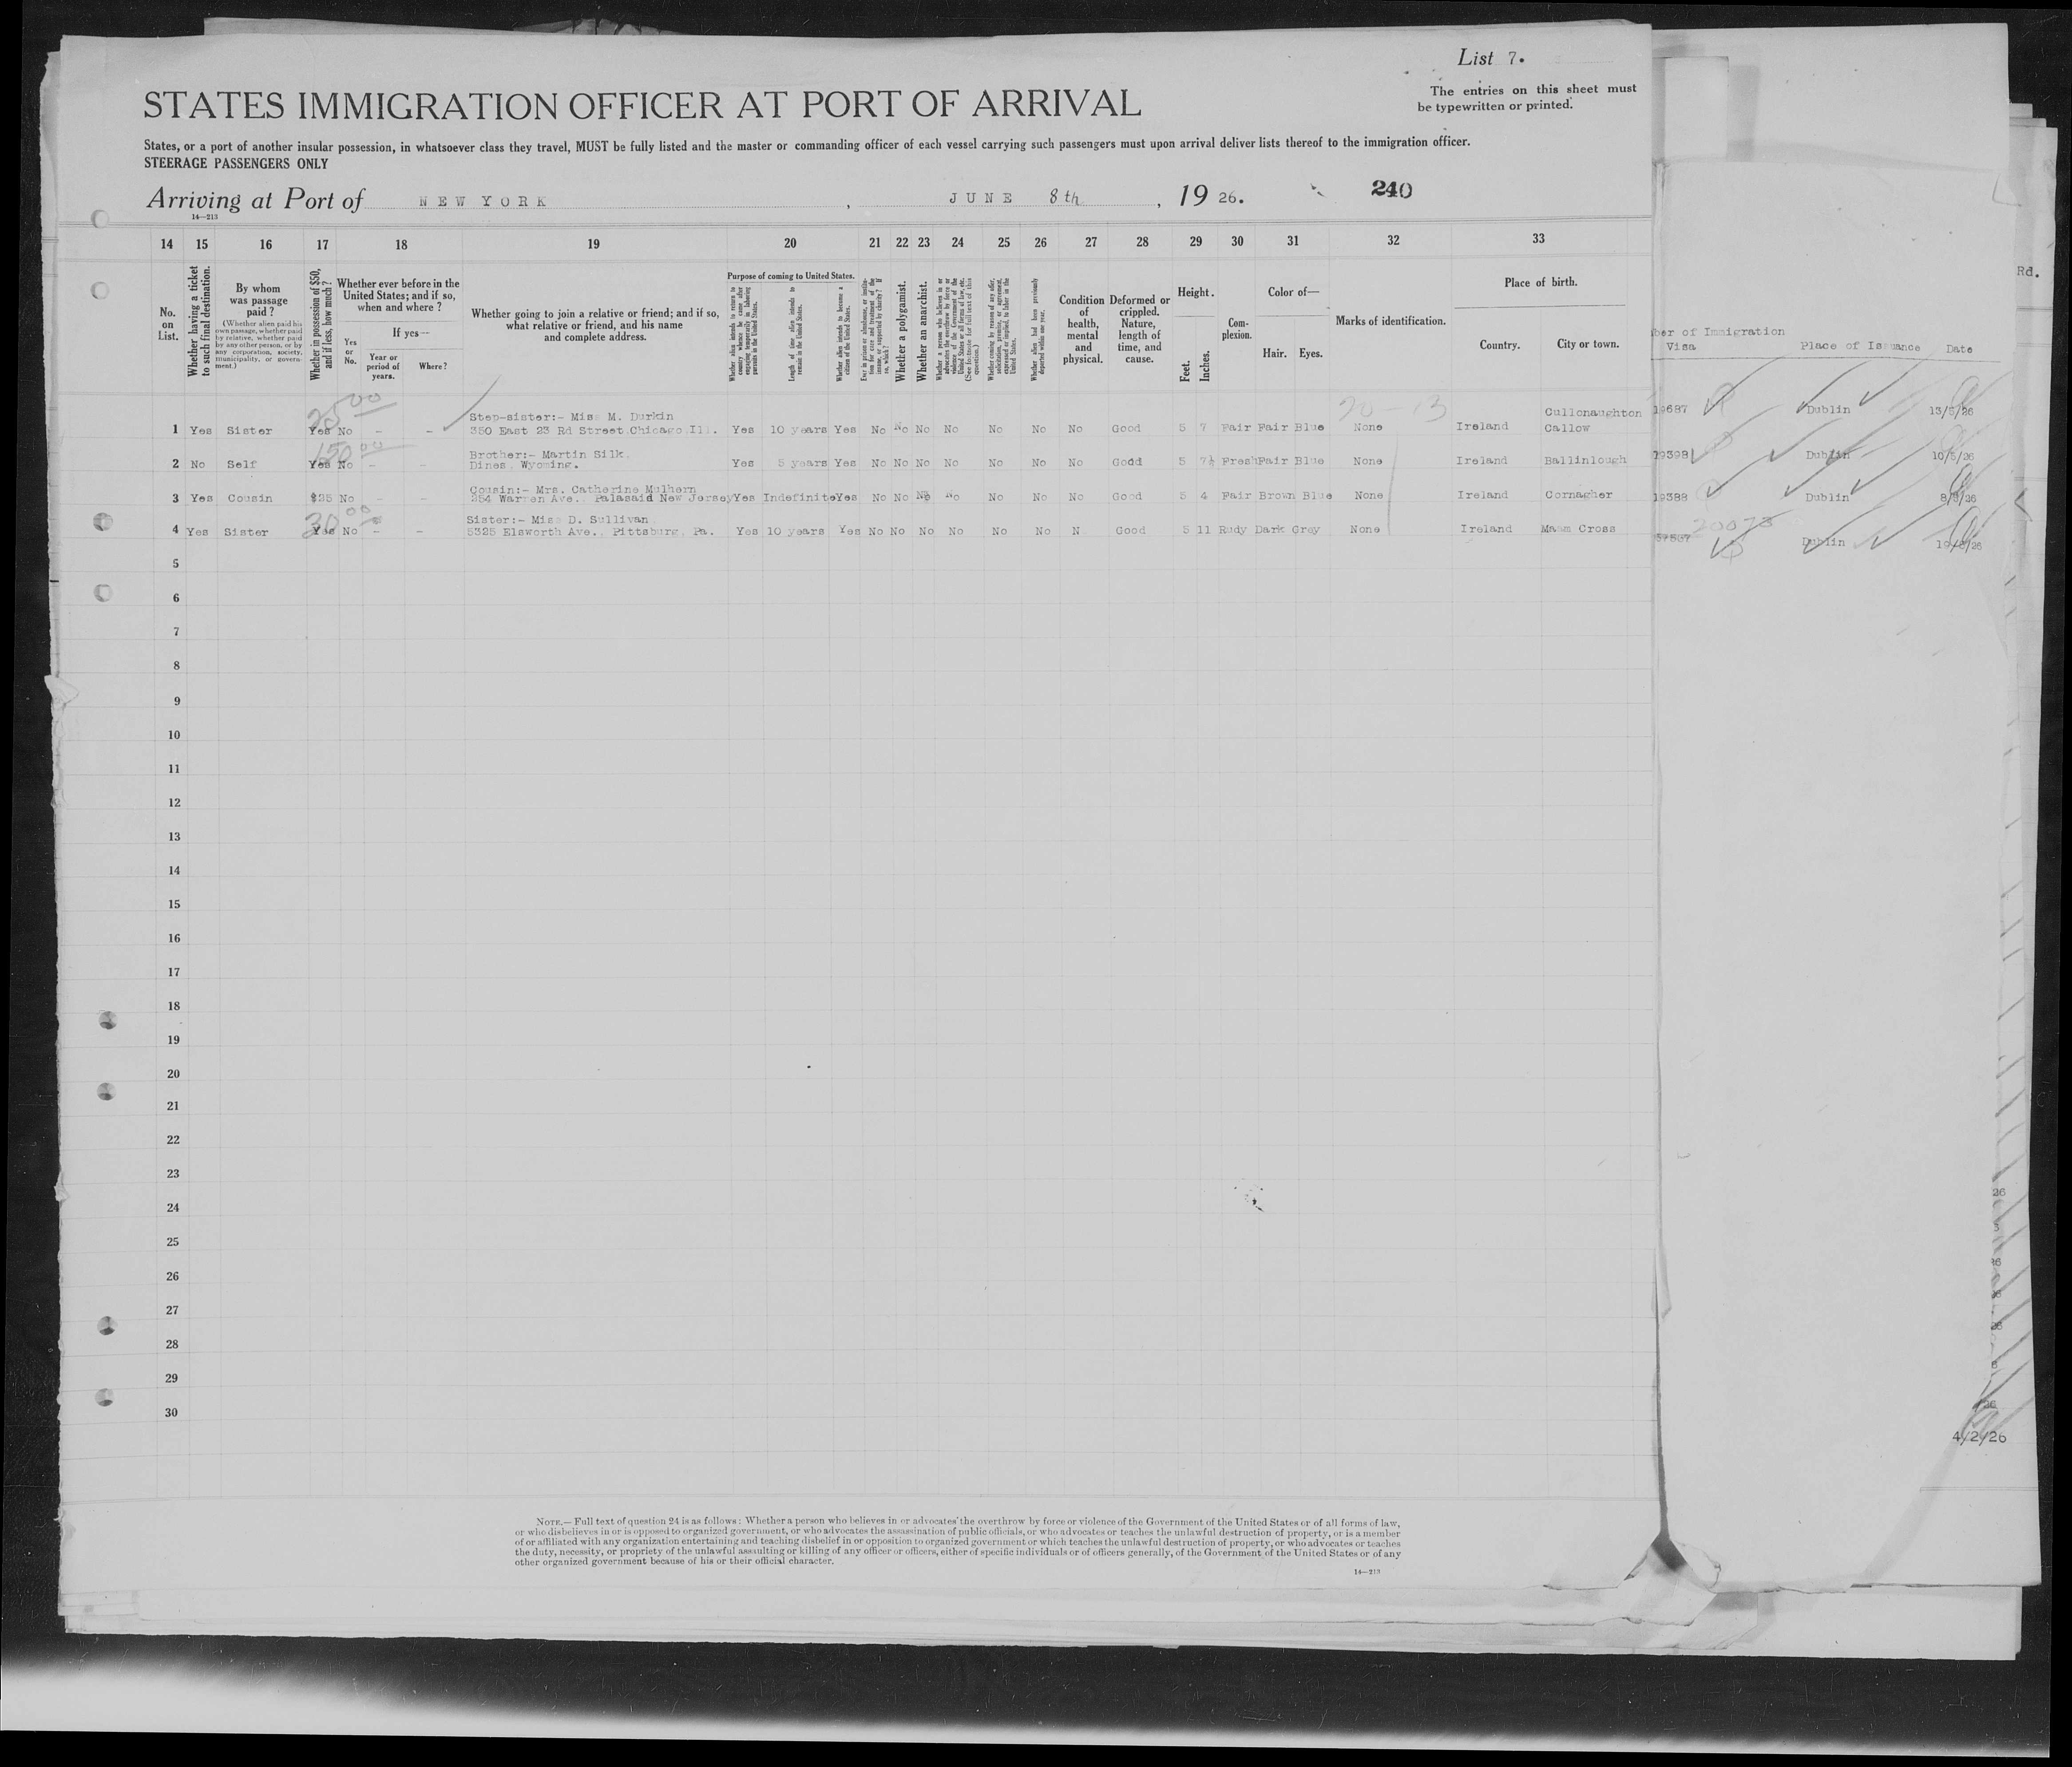 List 7.
The entries on this sheet must
be typewritten or printed.
STATES IMMIGRATION OFFICER AT PORT OF ARRIVAL
States, or a port of another insular possession, in whatsoever class they travel, MUST be fully listed and the master or commanding officer of each vessel carrying such passengers must upon arrival deliver lists thereof to the immigration officer.
STEERAGE PASSENGERS ONLY
Arriving at Port of NEW YORK, JUNE 8th, 19 26.
240
14—213
14 15 16 17 18 19 20 21 22 23 24 25 26 27 28 29 30 31 32 33
No. on List.
Whether having a ticket to such final destination.
By whom was passage paid?
(Whether alien paid his own passage, whether paid by relative, whether paid by any other person, or by any corporation, society, municipality, or government.)
Whether in possession of $50, and if less, how much?
Whether ever before in the United States; and if so, when and where?
Yes or No.
If yes—
Year or period of years.
Where?
Whether going to join a relative or friend; and if so, what relative or friend, and his name and complete address.
Purpose of coming to United States.
Whether alien intends to return to country whence he came after engaging temporarily in laboring pursuits in the United States.
Length of time alien intends to remain in the United States.
Whether alien intends to become a citizen of the United States.
Ever in prison or almshouse, or institution for care and treatment of the insane, or supported by charity? If so, which?
Whether a polygamist.
Whether an anarchist.
Whether a person who believes in or advocates the overthrow by force or violence of the Government of the United States or all forms of law, etc. (See footnote for full text of this question.)
Whether coming by reason of any offer, solicitation, promise, or agreement, expressed or implied, to labor in the United States.
Whether alien had been previously deported within one year.
Condition of health, mental and physical.
Deformed or crippled. Nature, length of time, and cause.
Height.
Feet.
Inches.
Complexion.
Color of—
Hair. Eyes.
Marks of identification.
Place of birth.
Country.
City or town.
Rd.
ber of Immigration
Visa
Place of Issuance
Date
25 00
20-13
1 Yes Sister Yes No - - Step-sister:- Miss M. Durkin
350 East 23 Rd Street Chicago Ill. Yes 10 years Yes No No No No No No No Good 5 7 Fair Fair Blue None Ireland Cullonaughton
Callow 19687 Dublin 13/5/26
150 00
2 No Self Yes No - - Brother:- Martin Silk.
Dines. Wyoming. Yes 5 years Yes No No No No No No No Godd 5 7½ Fresh Fair Blue None Ireland Ballinlough 19398 Dublin 10/5/26
3 Yes Cousin $25 No - - Cousin:- Mrs. Catherine Mulhern
254 Warren Ave. Palasaid New Jersey Yes Indefinite Yes No No No No No No No Good 5 4 Fair Brown Blue None Ireland Cornagher 19388 Dublin
30 00
20073
4 Yes Sister Yes No - - Sister:- Miss D. Sullivan
5325 Elsworth Ave. Pittsburg. Pa. Yes 10 years Yes No No No No No No N Good 5 11 Rudy Dark Grey None Ireland Maam Cross Dublin
5
6
7
8
9
10
11
12
13
14
15
16
17
18
19
20
21
22
23
24
25
26
27
28
29
30
4/2/26
NOTE.—Full text of question 24 is as follows: Whether a person who believes in or advocates the overthrow by force or violence of the Government of the United States or of all forms of law,
or who disbelieves in or is opposed to organized government, or who advocates the assassination of public officials, or who advocates or teaches the unlawful destruction of property, or is a member
of or affiliated with any organization entertaining and teaching disbelief in or opposition to organized government or which teaches the unlawful destruction of property, or who advocates or teaches
the duty, necessity, or propriety of the unlawful assaulting or killing of any officer or officers, either of specific individuals or of officers generally, of the Government of the United States or of any
other organized government because of his or their official character.
14—213